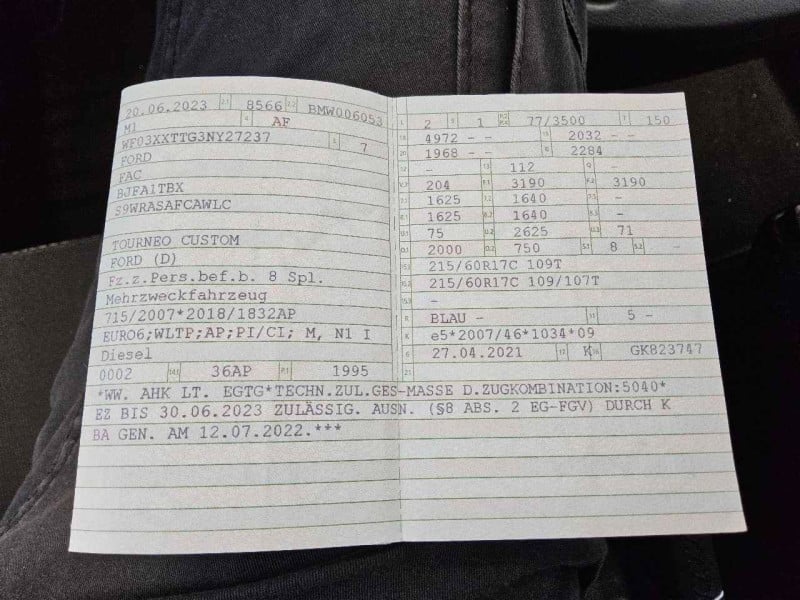 20.06.2023 8566 BMW006053
M1 AF
WF03XXTTG3NY27237 7
FORD
FAC
BJFA1TBX
S9WRASAFCAWLC
TOURNEO CUSTOM
FORD (D)
Fz.z.Pers.bef.b. 8 Spl.
Mehrzweckfahrzeug
715/2007*2018/1832AP
EURO6;WLTP;AP;PI/CI; M, N1 I
Diesel
0002 14.1 36AP P.1 1995
L 2 9 1 P.2 P.4 77/3500 T 150
18 4972 - - 19 2032 - -
20 1968 - - G 2284
12 - 13 112 Q -
V.7 204 F.1 3190 F.2 3190
7.1 1625 7.2 1640 7.3 -
8.1 1625 8.2 1640 8.3 -
U.1 75 U.2 2625 U.3 71
O.1 2000 O.2 750 S.1 8 S.2 -
15.1 215/60R17C 109T
15.2 215/60R17C 109/107T
15.3 -
R BLAU - 11 5 -
K e5*2007/46*1034*09
6 27.04.2021 17 K 16 GK823747
21
*WW. AHK LT. EGTG*TECHN.ZUL.GES-MASSE D.ZUGKOMBINATION:5040*
EZ BIS 30.06.2023 ZULÄSSIG. AUSN. (§8 ABS. 2 EG-FGV) DURCH K
BA GEN. AM 12.07.2022.***